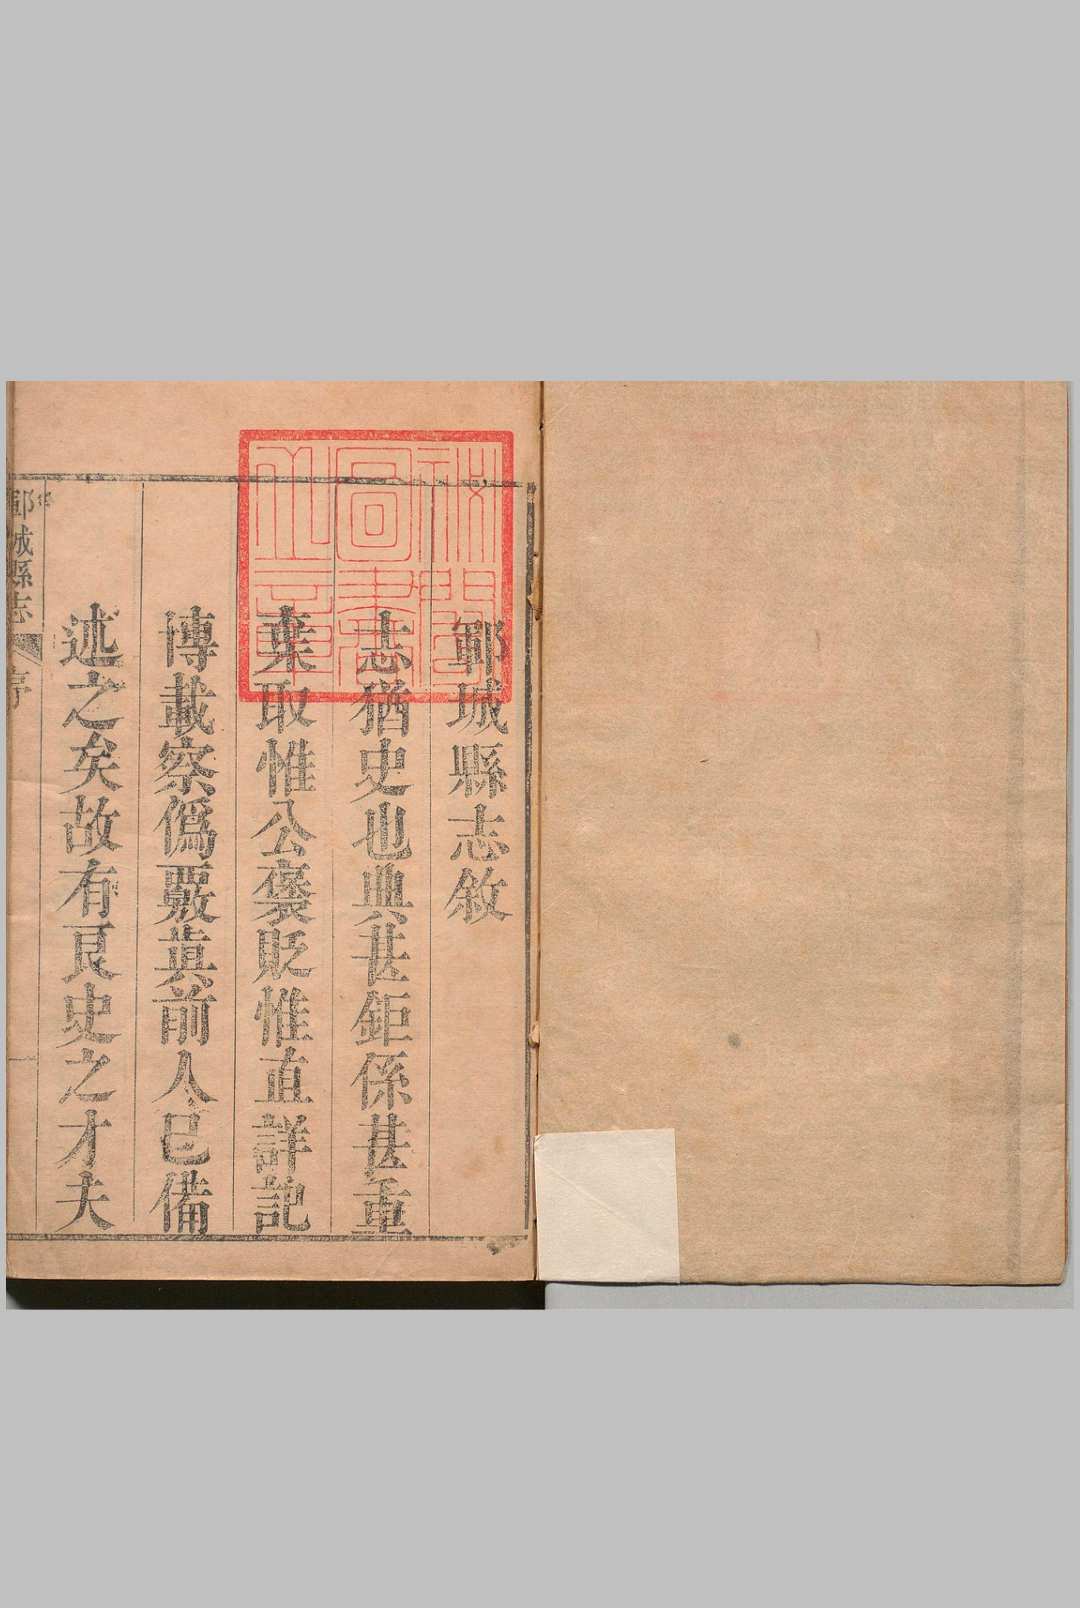 祕閣
圖書
之章
鄆城縣志敘
志猶史也典甚鉅係甚重
棄取惟公褒貶惟直詳記
博載察僞覈眞前人已備
述之矣故有良史之才夫
鄆城縣志 序 一